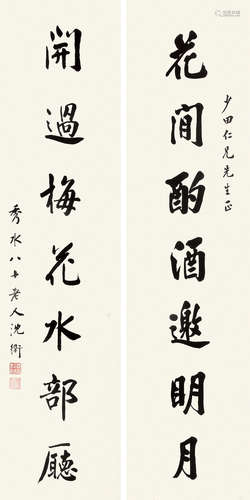 少田仁兄先生正
花間酌酒邀明月
開過梅花水部廳
秀水八十老人沈衛